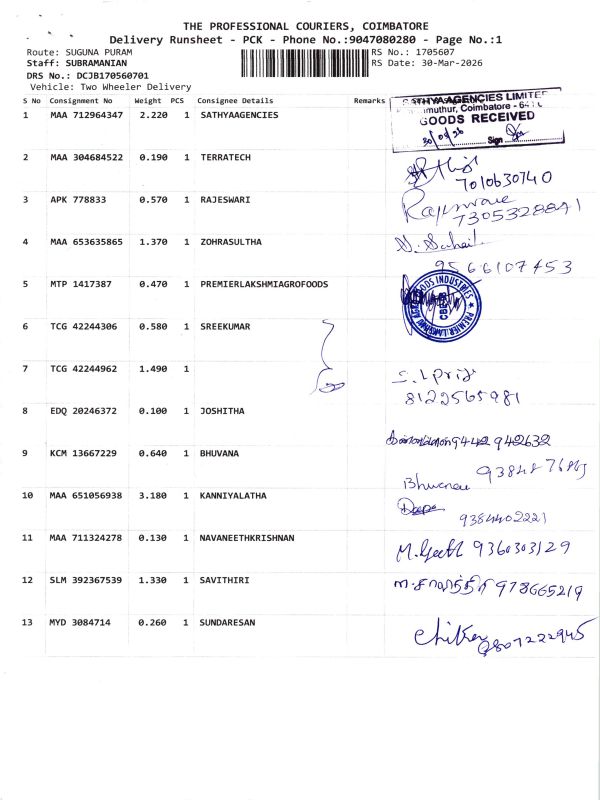 THE PROFESSIONAL COURIERS, COIMBATORE
Delivery Runsheet - PCK - Phone No.:9047080280 - Page No.:1
Route: SUGUNA PURAM
RS No.: 1705607
Staff: SUBRAMANIAN
RS Date: 30-Mar-2026
DRS No.: DCJB170560701
Vehicle: Two Wheeler Delivery
S No Consignment No Weight PCS Consignee Details Remarks
SATHYA AGENCIES LIMITED
Coimbatore
GOODS RECEIVED
Sign
1 MAA 712964347 2.220 1 SATHYAAGENCIES
2 MAA 304684522 0.190 1 TERRATECH
7010630740
3 APK 778833 0.570 1 RAJESWARI
4 MAA 653635865 1.370 1 ZOHRASULTHA
9566107453
5 MTP 1417387 0.470 1 PREMIERLAKSHMIAGROFOODS
6 TCG 42244306 0.580 1 SREEKUMAR
7 TCG 42244962 1.490 1
8122565981
8 EDQ 20246372 0.100 1 JOSHITHA
9442942632
9 KCM 13667229 0.640 1 BHUVANA
10 MAA 651056938 3.180 1 KANNIYALATHA
9384402221
11 MAA 711324278 0.130 1 NAVANEETHKRISHNAN
9360303129
12 SLM 392367539 1.330 1 SAVITHIRI
13 MYD 3084714 0.260 1 SUNDARESAN